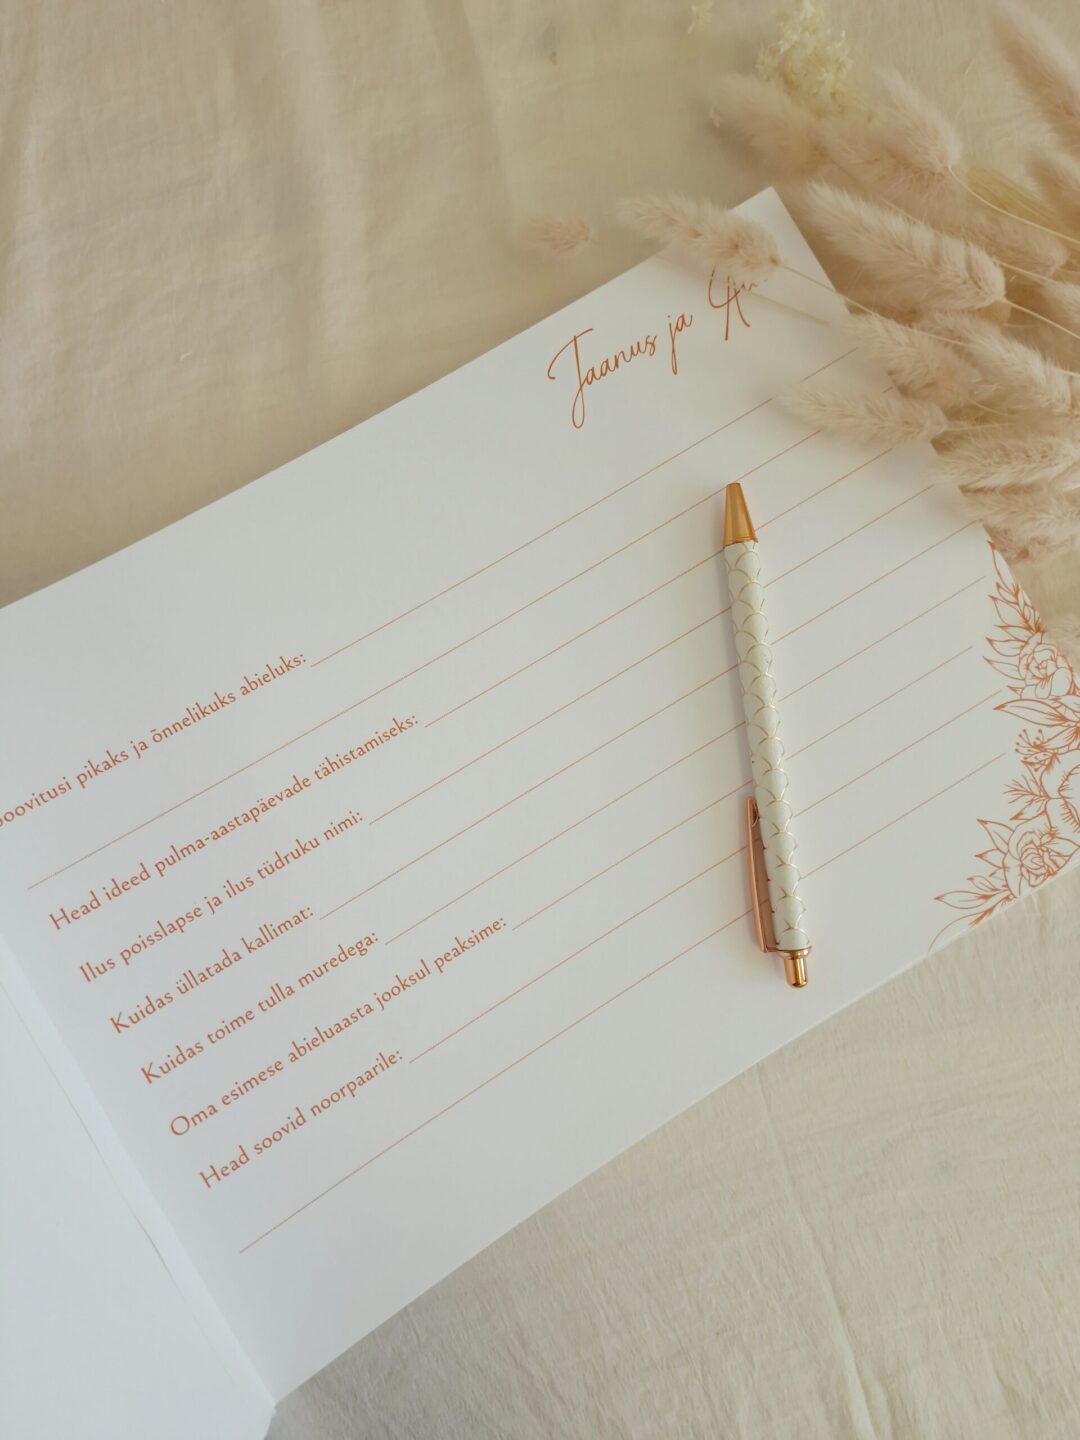 Jaanus ja
pikaks ja õnnelikuks abieluks:
Head ideed pulma-aastapäevade tähistamiseks:
Ilus poisslapse ja ilus tüdruku nimi:
Kuidas üllatada kallimat:
Kuidas toime tulla muredega:
Oma esimese abieluaasta jooksul peaksime:
Head soovid noorpaarile: